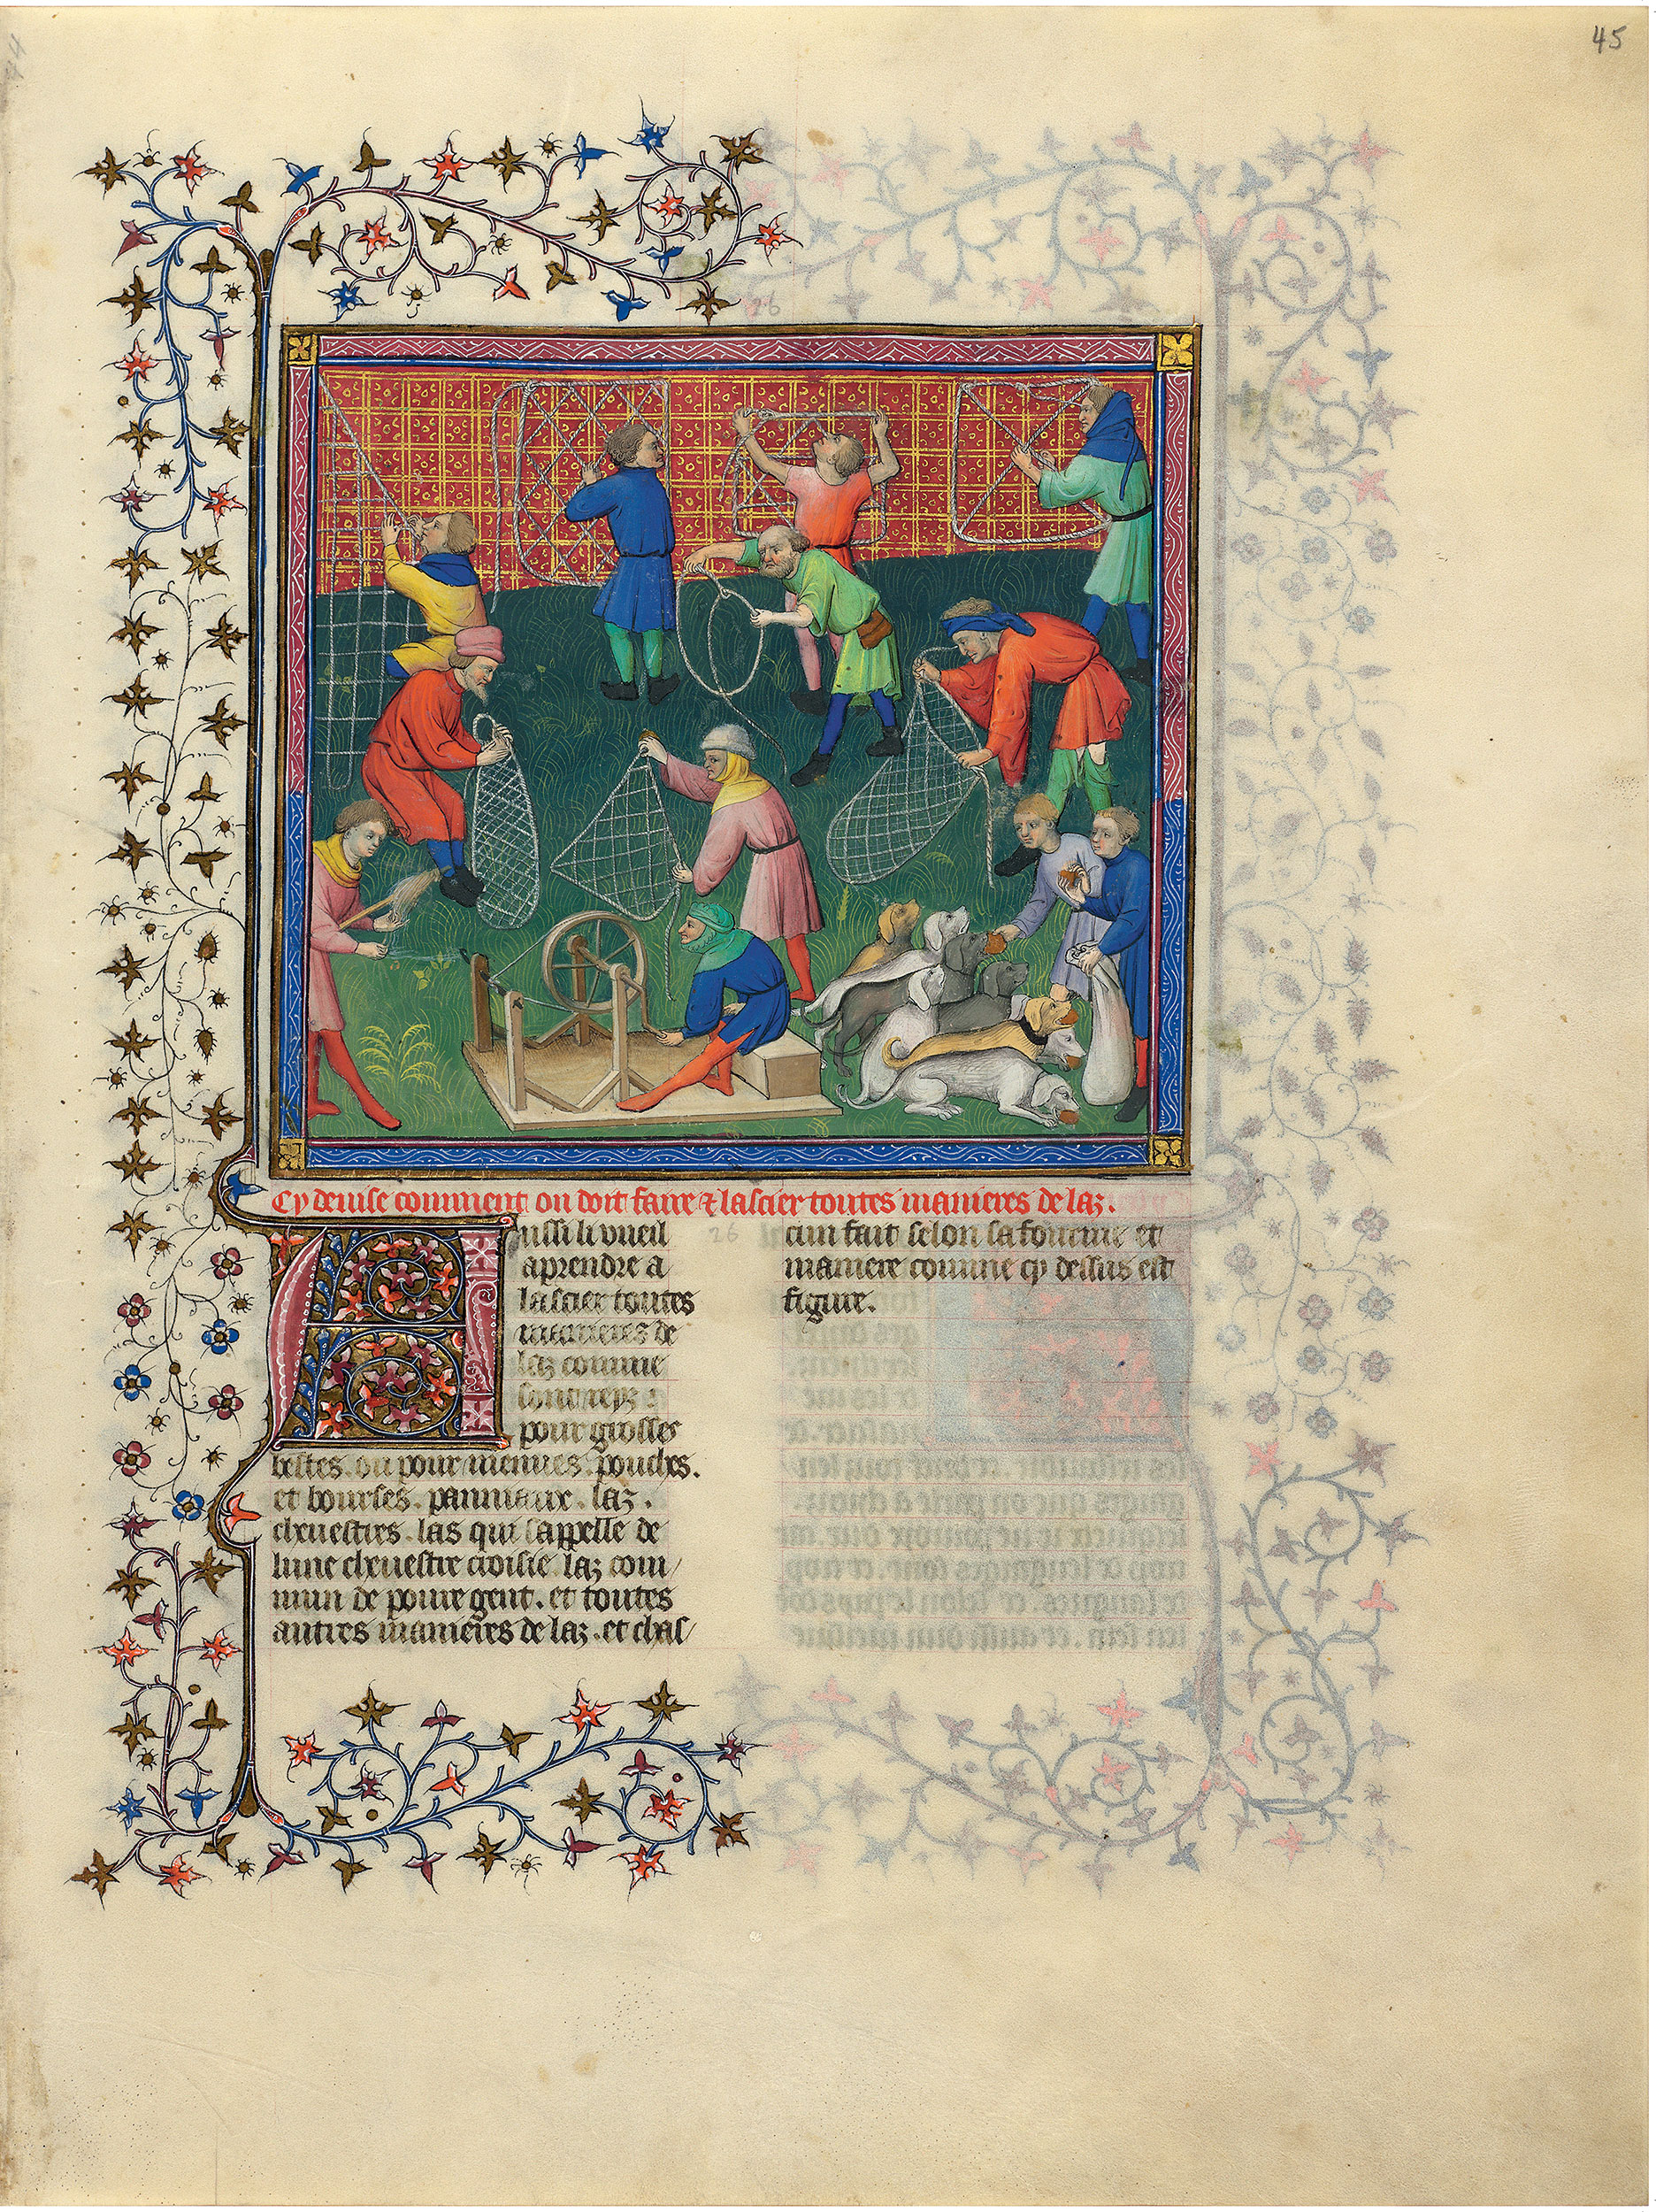 45
26
Cy deuise comment on doit faire & lascier toutes manieres de laz.
Aussi li vueil
aprendre a
lascier toutes
manieres de
laz comme
sont
pour grosses
bestes. ou pour menues. pouches.
et bourses. panniaux. laz.
cheuestres. las qui sappelle de
lune cheuestre croisie. laz com/
mun de poure gent. et toutes
autres manieres de laz. et chas/
26
cun fait selon sa fourme et
maniere comme cy dessus est
figure.